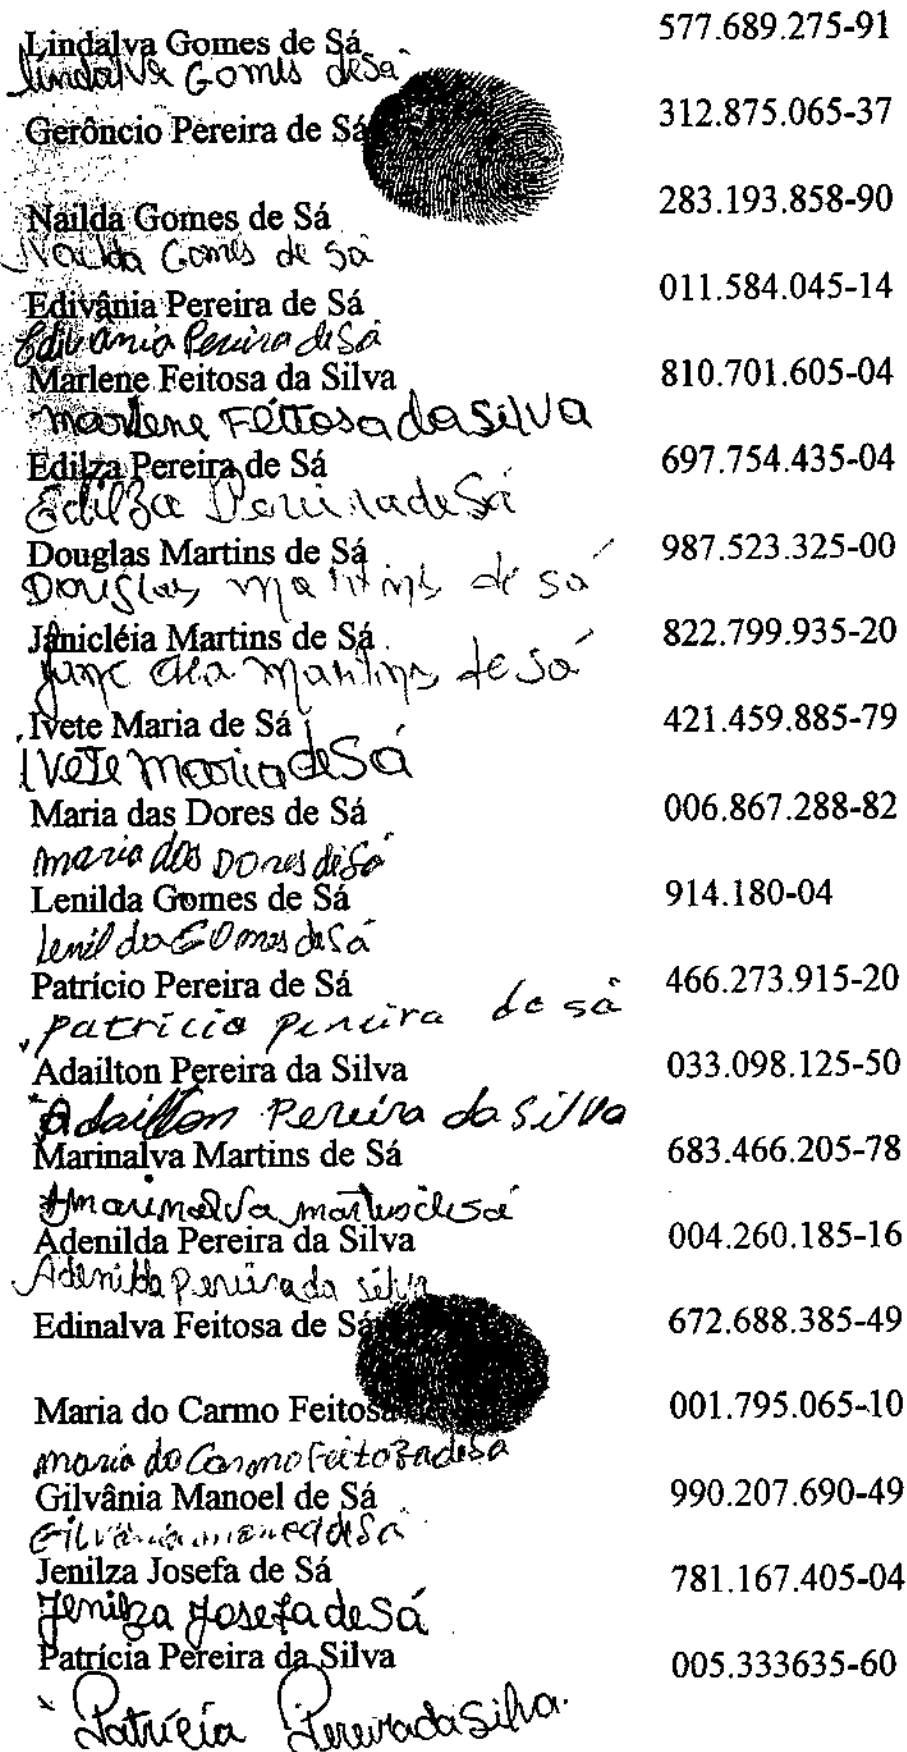 Lindalva Gomes de Sá 577.689.275-91
Lindalva Gomes de Sá
Gerôncio Pereira de Sá 312.875.065-37
Nailda Gomes de Sá 283.193.858-90
Nailda Gomes de Sá
Edivânia Pereira de Sá 011.584.045-14
Edivânia Pereira de Sá
Marlene Feitosa da Silva 810.701.605-04
Marlene Feitosa da Silva
Edilza Pereira de Sá 697.754.435-04
Edilza Pereira de Sá
Douglas Martins de Sá 987.523.325-00
Douglas Martins de Sá
Janicléia Martins de Sá 822.799.935-20
Martins de Sá
Ivete Maria de Sá 421.459.885-79
Ivete Maria de Sá
Maria das Dores de Sá 006.867.288-82
Maria das Dores de Sá
Lenilda Gomes de Sá 914.180-04
Lenilda Gomes de Sá
Patrício Pereira de Sá 466.273.915-20
Patricio Pereira de Sá
Adailton Pereira da Silva 033.098.125-50
Adailton Pereira da Silva
Marinalva Martins de Sá 683.466.205-78
Marinalva Martins de Sá
Adenilda Pereira da Silva 004.260.185-16
Adenilda Pereira da Silva
Edinalva Feitosa de Sá 672.688.385-49
Maria do Carmo Feitosa 001.795.065-10
Maria do Carmo Feitoza de Sá
Gilvânia Manoel de Sá 990.207.690-49
Gilvânia Manoel de Sá
Jenilza Josefa de Sá 781.167.405-04
Jenilza Josefa de Sá
Patrícia Pereira da Silva 005.333635-60
Patrícia Pereira da Silva.